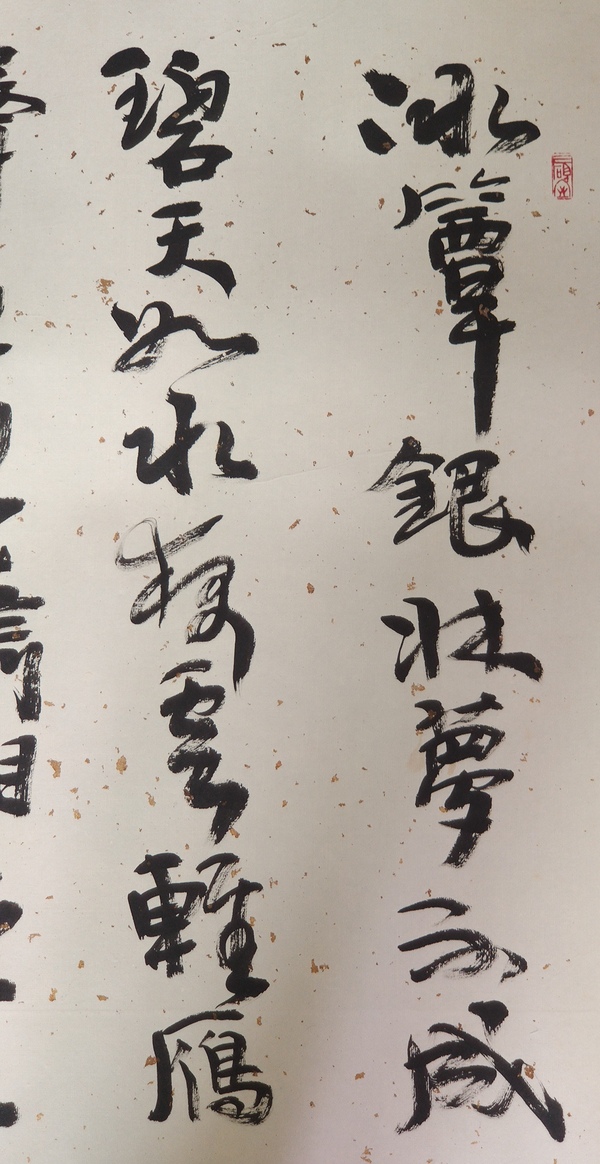 冰簟銀牀夢不成
碧天如水夜雲輕雁